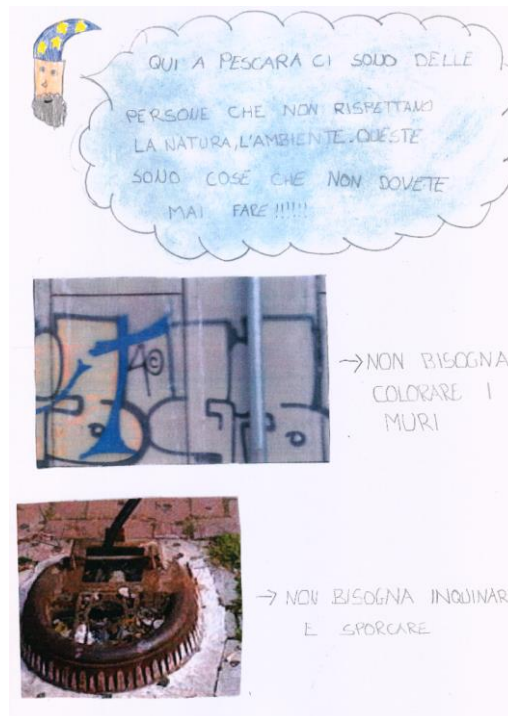 QUI A PESCARA CI SONO DELLE
PERSONE CHE NON RISPETTANO
LA NATURA, L'AMBIENTE. QUESTE
SONO COSE CHE NON DOVETE
MAI FARE!!!!!!
40
→ NON BISOGNA
COLORARE I
MURI
→ NON BISOGNA INQUINAR
E SPORCARE